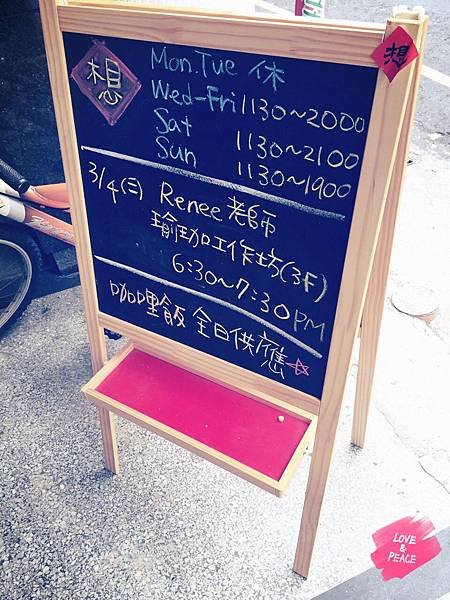 想
想
Mon.Tue 休
Wed-Fri 1130~2000
Sat 1130~2100
Sun 1130~1900
3/4(三) Renee老師
瑜珈工作坊(3F)
6:30~7:30PM
咖哩飯 全日供應☆
LOVE
&
PEACE